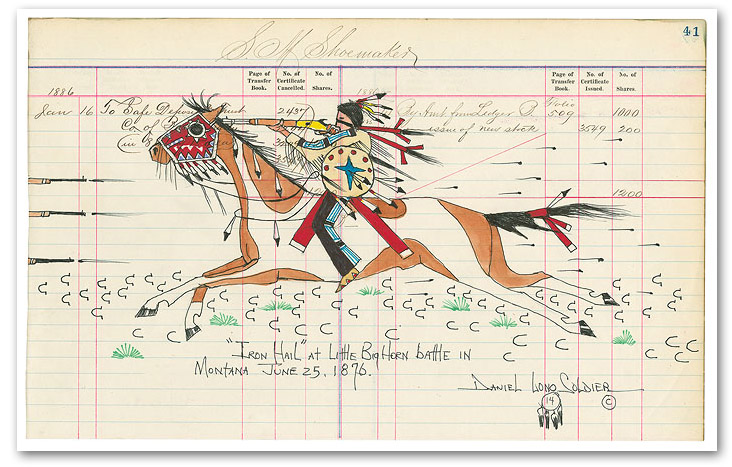 41
S. M. Shoemaker
Page of Transfer Book. No. of Certificate Cancelled. No. of Shares. Page of Transfer Book. No. of Certificate Issued. No. of Shares.
1886
Jan 16 To Safe Deposit & Trust 2437 By Amt from Ledger B. Folio 509 1000
Co. of issue of new stock 3549 200
in
1200
"Iron Hail" at Little Big Horn battle in
Montana June 25, 1876.
Daniel Long Soldier
14 ©